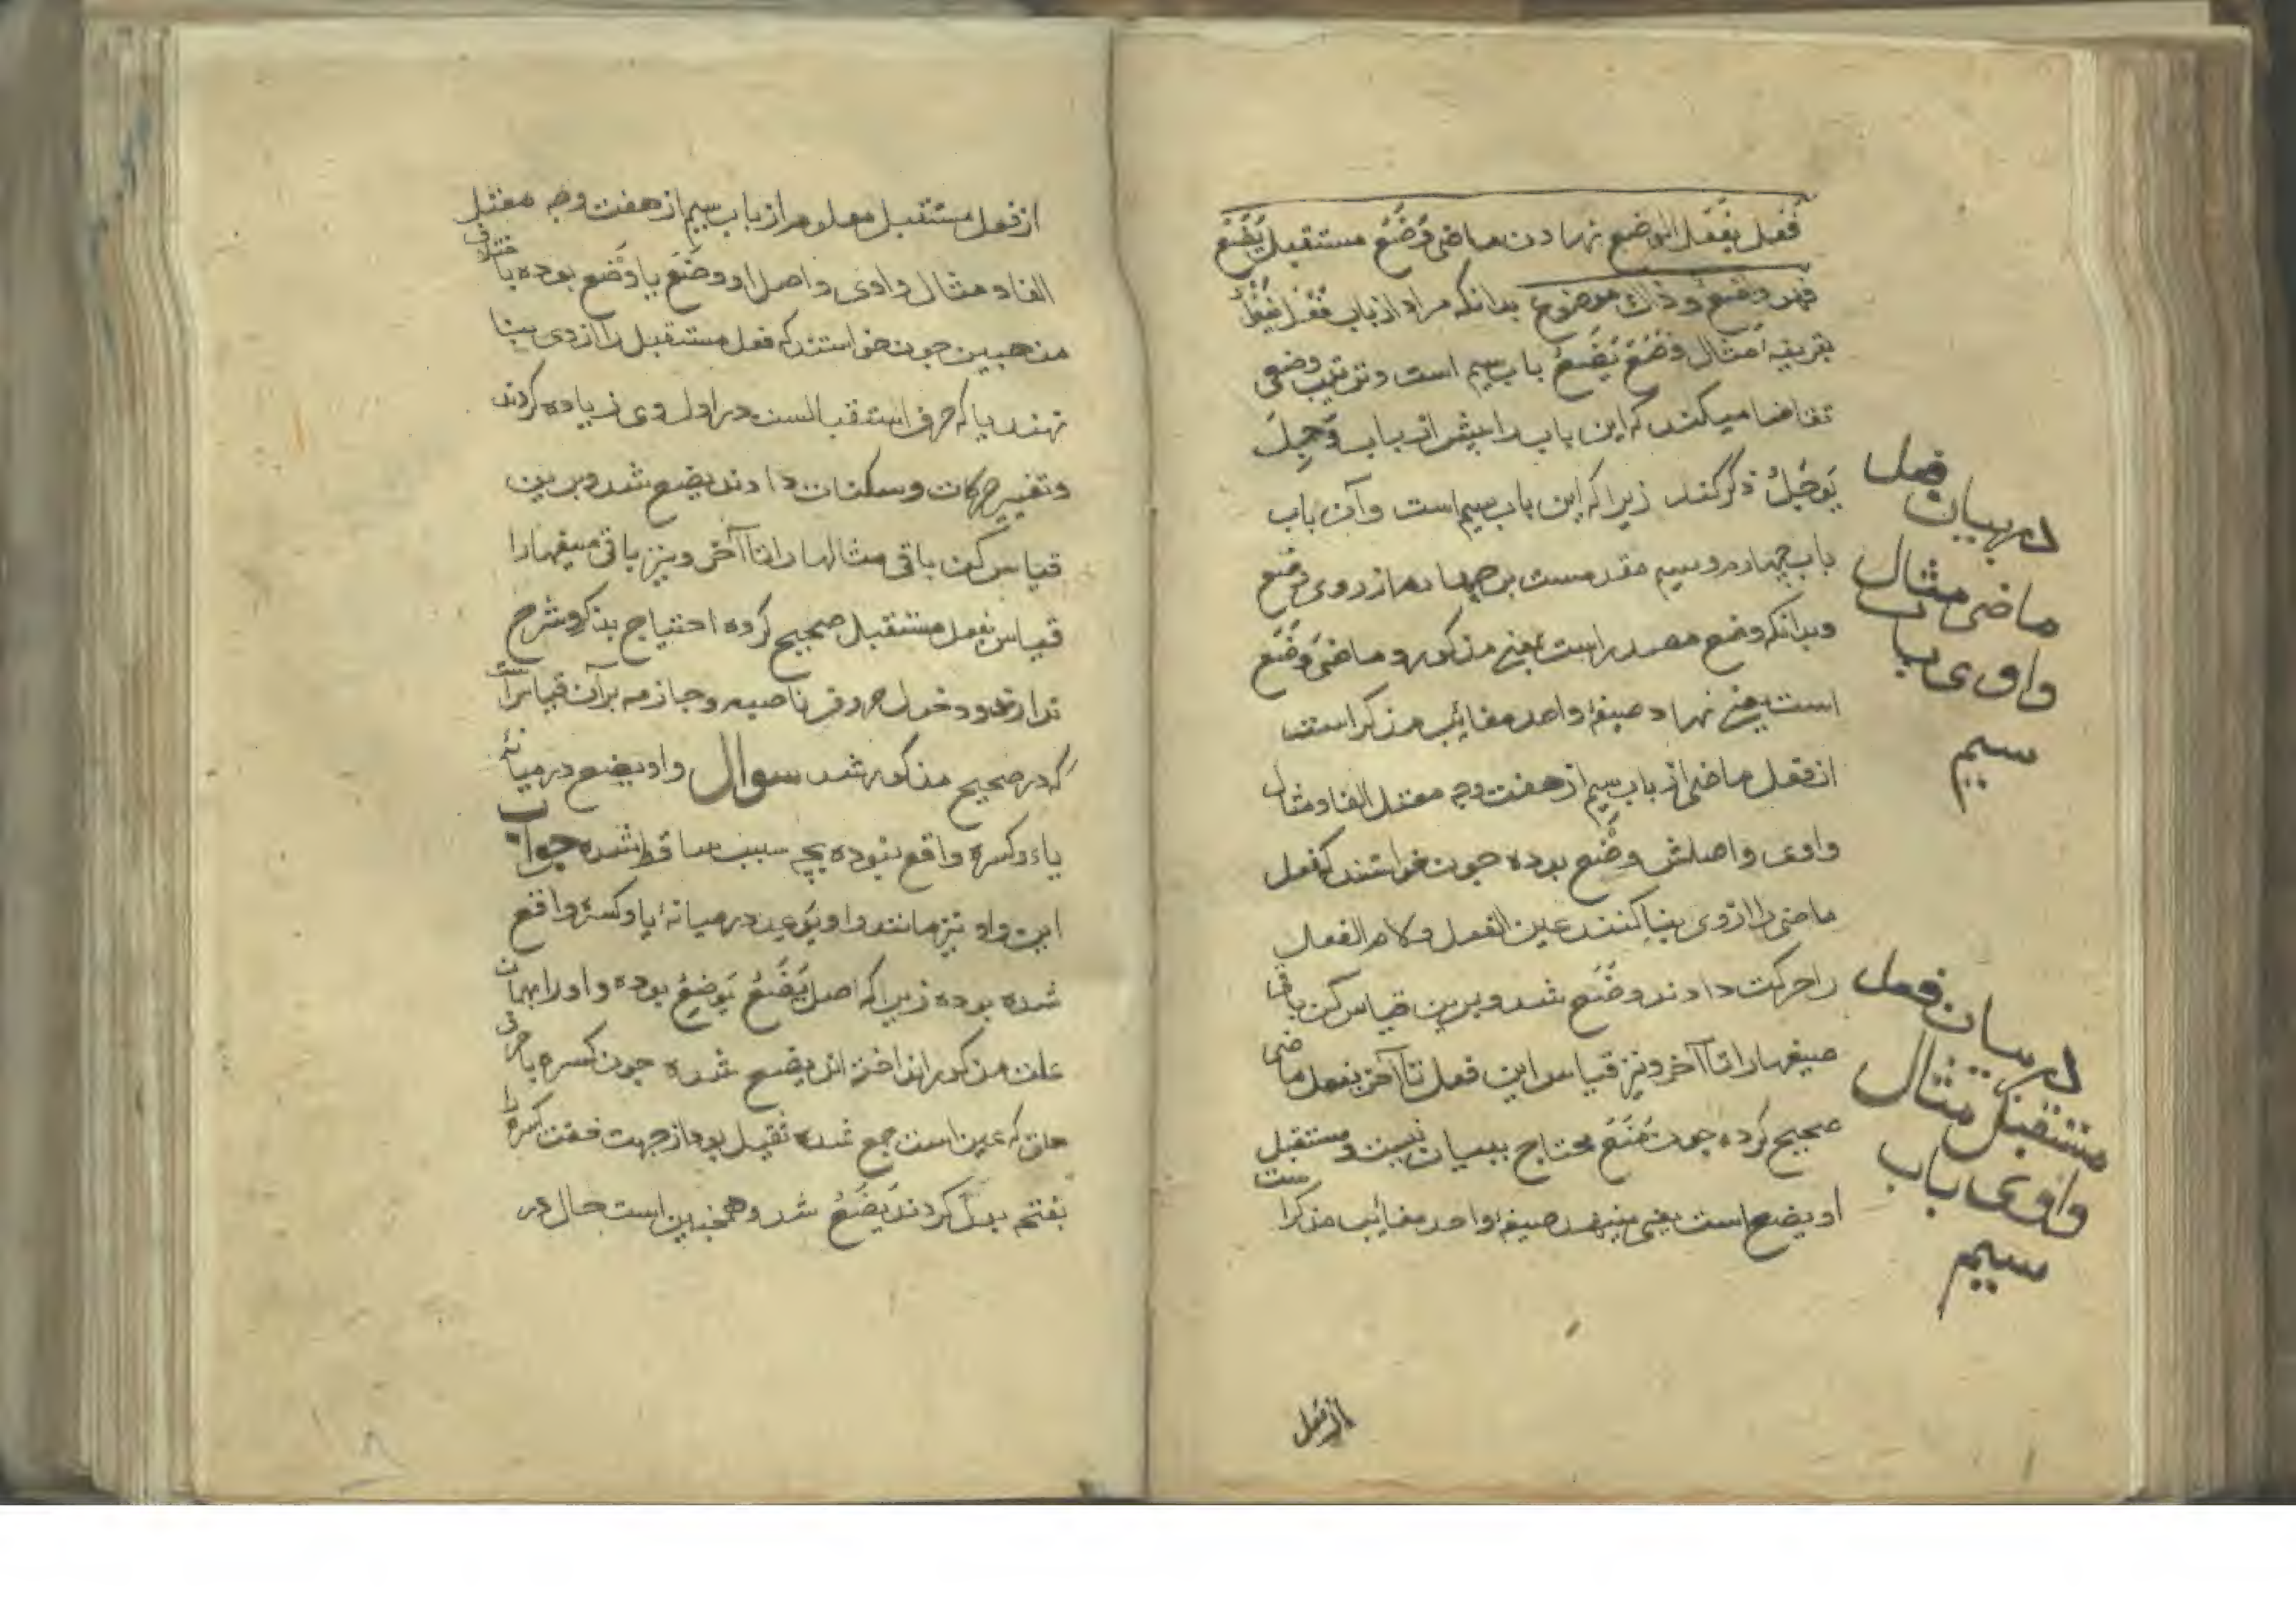 فَعَلَ یَفْعَلُ الوضع نهادن ماضی وَضَعَ مستقبل یَضَعُ
فهو وضیع و ذاك موضوع بدانکه مراد از باب فَعَلَ یَفْعَلُ
بقرینهٔ امثال وَضَعَ یَضَعُ باب سیم است و ترتیب وضعی
تقاضا میکند که این باب را پیش از باب وَجِلَ
یَوْجَلُ ذکر کند زیرا که این باب سیم است و آن باب
باب چهارم و سیم مقدمست بر چهارم از روی وضع
و بدانکه وضع مصدر است بمعنی مذکور و ماضی وَضَعَ
است یعنی نهاد صیغهٔ واحد مغایب مذکر است
از فعل ماضی از باب سیم از هفت وجه معتل الفاء و مثال
واوی و اصلش وضع بوده چون خواستند که فعل
ماضی را از وی بنا کنند عین الفعل و لام الفعل
را حرکت دادند وَضَعَ شد و برین قیاس کن باقی
صیغها را تا آخر و نیز قیاس این فعل تا آخر بفعل ماضی
صحیح کرده چون مَنَعَ محتاج ببیان نیست و مستقبل
او یضع است یعنی مینهد صیغهٔ واحد مغایب مذکر است
در بیان فعل
ماضی مثال
واوی باب
سیم
در بیان فعل
مستقبل مثال
واوی باب
سیم
از فعل
از فعل مستقبل معلوم از باب سیم از هفت وجه معتل
الفاء و مثال واوی و اصل او وَضَعَ یا وَضْع بوده با اختلاف
مذهبین چون خواستند که فعل مستقبل را از وی بنا
نهند یا که حرف استقبالست در اول وی زیاده کردند
و تغییر حرکات و سکنات دادند یضع شد و برین
قیاس کن باقی مثالها را تا آخر و نیز باقی صیغها را
قیاس بفعل مستقبل صحیح کرده احتیاج بذکر و شرح
ندارند و دخول حروف ناصبه و جازمه بر آن قیاس است
که در صحیح مذکور شد سوال واو یضع در میانهٔ
یاء و کسره واقع نبوده بچه سبب ساقط شده جواب
این واو نیز مانند واو یَوْعِد در میانهٔ یا و کسره واقع
شده بوده زیرا که اصل یَضَعُ یَوْضِعُ بوده واو را بهمان
علت مذکور انداخته اند یضع شده چون کسره با حرف
حلق که عین است جمع شده ثقیل بود از جهت خفت کسره را
بفتحه بدل کردند یَضَعُ شد و همچنین است حال در